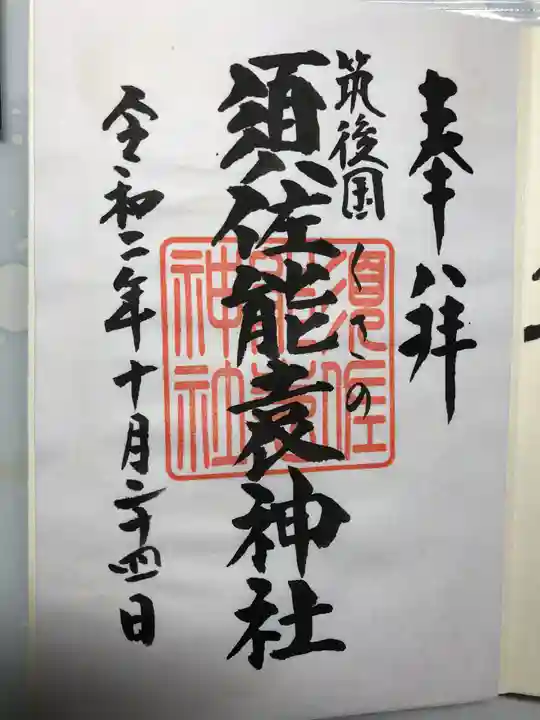 奉拝
筑後国くさの
須佐能袁神社
須佐能袁神社
令和二年十月二十四日